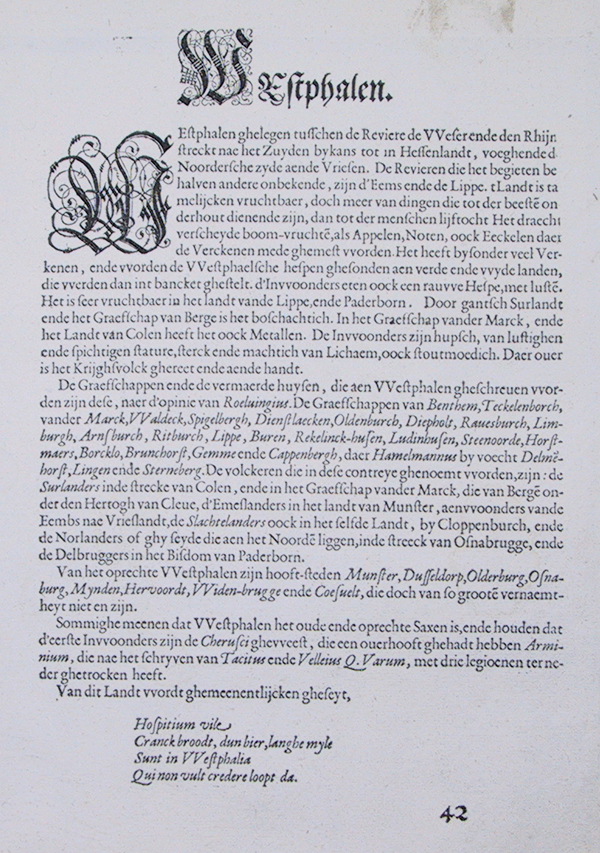 WEstphalen.
WEstphalen ghelegen tusschen de Reviere de VVeser ende den Rhijn
streckt nae het Zuyden bykans tot in Hessenlandt, voeghende d
Noordersche zyde aende Vriesen. De Revieren die het begieten be
halven andere onbekende, zijn d'Eems ende de Lippe. t Landt is ta
melijcken vruchtbaer, doch meer van dingen die tot der beestē on
derhout dienende zijn, dan tot der menschen lijftocht Het draecht
verscheyde boom-vruchtē, als Appelen, Noten, oock Eeckelen daer
de Verckenen mede ghemest vvorden. Het heeft bysonder veel Ver-
kenen, ende vvorden de VVestphaelsche hespen ghesonden aen verde ende vvyde landen,
die vverden dan int bancket ghestelt. d'Invvoonders eten oock een rauvve Hespe, met lustē.
Het is seer vruchtbaer in het landt vande Lippe, ende Paderborn. Door gantsch Surlandt
ende het Graefschap van Berge is het boschachtich. In het Graefschap vander Marck, ende
het Landt van Colen heeft het oock Metallen. De Invvoonders zijn hupsch, van lustighen
ende spichtigen stature, sterck ende machtich van Lichaem, oock stoutmoedich. Daer ouer
is het Krijghsvolck ghereet ende aende handt.
De Graefschappen ende de vermaerde huysen, die aen VVestphalen gheschreuen vvor-
den zijn dese, naer d'opinie van Roeluingius. De Graefschappen van Benthem, Teckelenborch,
vander Marck, VValdeck, Spigelbergh, Dienstlaecken, Oldenburch, Diepholt, Rauesburch, Lim-
burgh, Arnsburch, Ritburch, Lippe, Buren, Rekelinck-husen, Ludinhusen, Steenoorde, Horst-
maers, Borcklo, Brunchorst, Gemme ende Cappenbergh, daer Hamelmannus by voecht Delmē-
horst, Lingen ende Sterneberg. De volckeren die in dese contreye ghenoemt vvorden, zijn: de
Surlanders inde strecke van Colen, ende in het Graefschap vander Marck, die van Bergē on-
der den Hertogh van Cleue, d'Emeslanders in het landt van Munster, aenvvoonders vande
Eembs nae Vrieslandt, de Slachtelanders oock in het selfde Landt, by Cloppenburch, ende
de Norlanders of ghy seyde die aen het Noordē liggen, inde streeck van Osnabrugge, ende
de Delbruggers in het Bisdom van Paderborn.
Van het oprechte VVestphalen zijn hooft-steden Munster, Dusseldorp, Olderburg, Osna-
burg, Mynden, Hervoordt, VViden-brugge ende Coesuelt, die doch van so grootē vernaemt-
heyt niet en zijn.
Sommighe meenen dat VVestphalen het oude ende oprechte Saxen is, ende houden dat
d'eerste Invvoonders zijn de Cherusci ghevveest, die een ouerhooft ghehadt hebben Armi-
nium, die nae het schryven van Tacitus ende Velleius Q. Varum, met drie legioenen ter ne-
der ghetrocken heeft.
Van dit Landt vvordt ghemeenentlijcken gheseyt,
Hospitium vile
Cranck broodt, dun bier, langhe myle
Sunt in VVestphalia
Qui non vult credere loopt da.
42